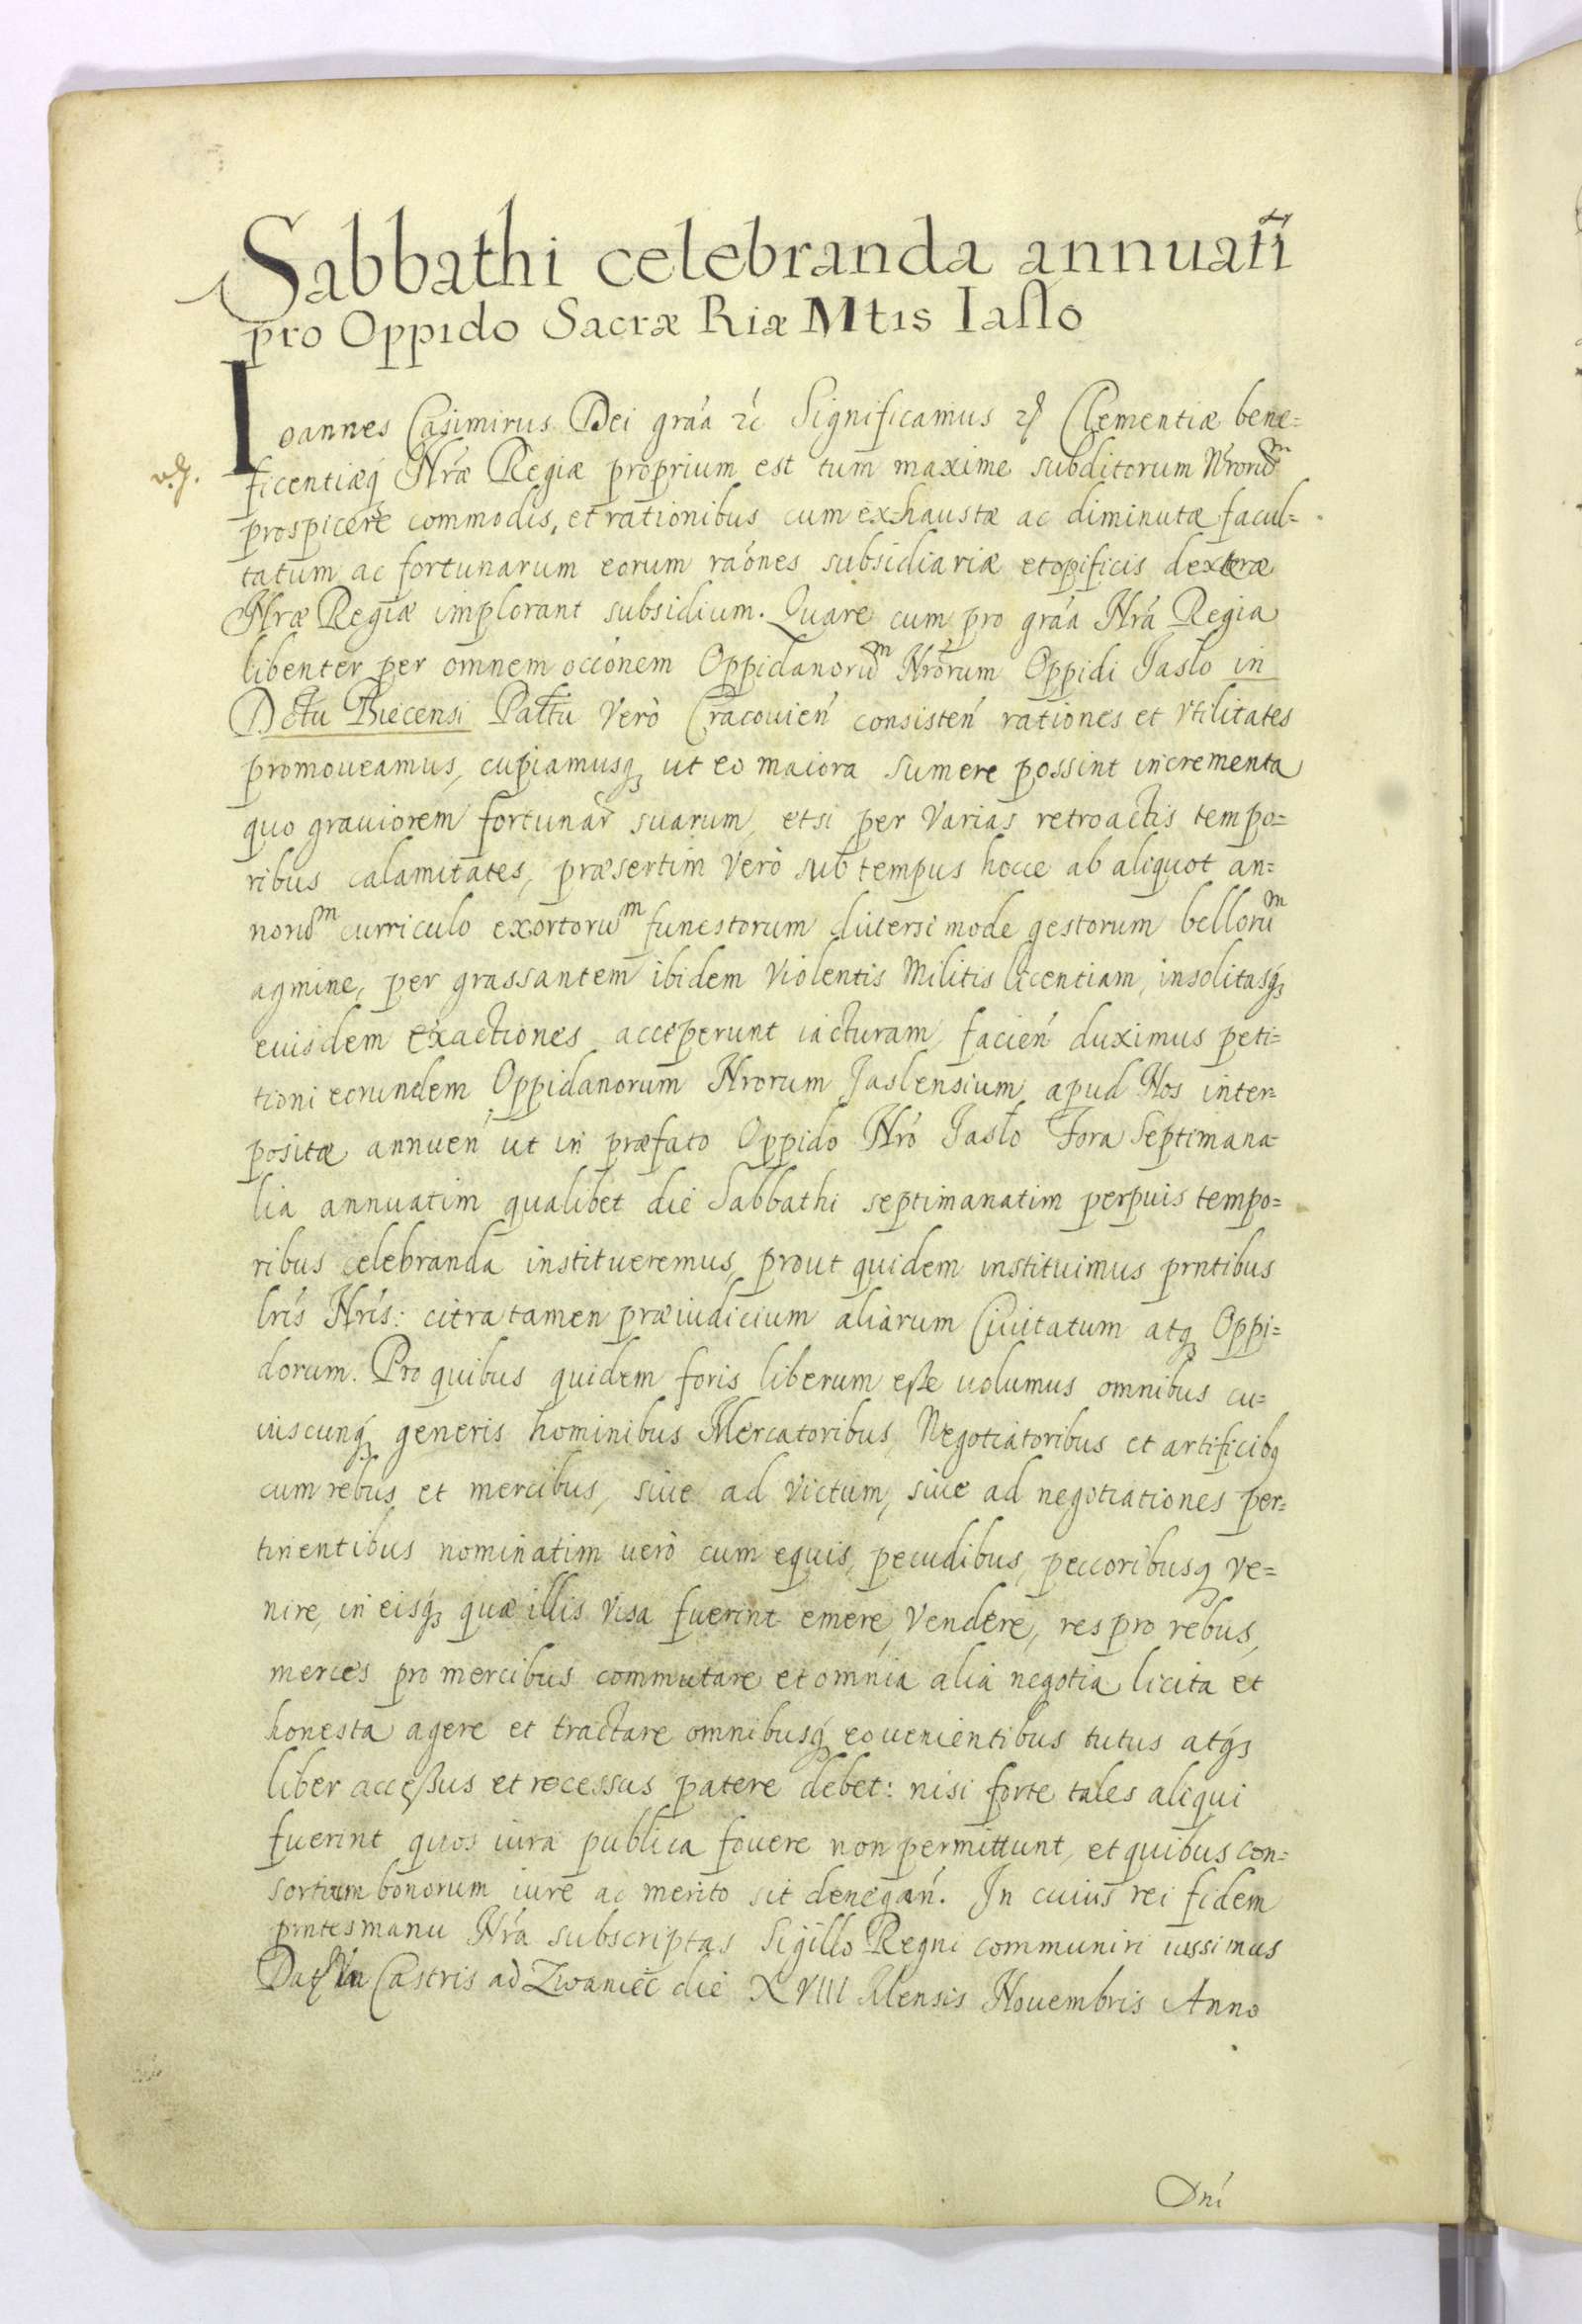 Sabbathi celebranda annuatĩ
pro Oppido Sacræ Riæ Mtis Iasło
Ioannes Casimirus Dei graá &c Significamus &c Clementiæ bene=
ficentiæq́ Nŕæ Regiæ proprium est tum maxime subditorum Nrorum
prospicere commodis, et rationibus cum exhaustæ ac diminutæ facul=
tatum ac fortunarum eorum raónes subsidiariæ et opificis dexteræ
Nræ Regiæ implorant subsidium. Quare cum pro graá Nrá Regia
libenter per omnem occónem Oppidanorum Nrórum Oppidi Jasło in
Dctu Biecensi Pałtu verò Cracouień consisteń rationes et vtilitates
promoueamus, cupiamusq ut eo maiora sumere possint incrementa
quo grauiorem fortunar̃ suarum, etsi per varias retroactis tempo=
ribus calamitates, præsertim verò sub tempus hocce ab aliquot an=
norum curriculo exortorum funestorum diuersimode gestorum bellorum
agmine, per grassantem ibidem violentis Militis licentiam, insolitasq́
euisdem exactiones acceperunt iacturam, facień duximus peti=
tioni eorundem Oppidanorum Nrorum Jaslensium apud Nos inter=
positæ annueń ut in præfato Oppido Nró Jasło Fora Septimana=
lia annuatim qualibet die Sabbathi septimanatim perpuis tempo=
ribus celebranda institueremus, prout quidem instituimus prntibus
lrís Nrís: citra tamen præiudicium aliarum Ciuitatum atq Oppi=
dorum. Pro quibus quidem foris liberum eße uolumus omnibus cu=
iuscunq́ generis hominibus Mercatoribus, Negotiatoribus et artificibq
cum rebus et mercibus, siue ad victum, siue ad negotiationes per=
tinentibus nominatim uerò cum equis, pecudibus, peccoribusq ve=
nire, in eisq́ quæ illis visa fuerint emere, vendere, res pro rebus,
merces pro mercibus commutare et omnia alia negotia licita et
honesta agere et tractare omnibusq́ eo uenientibus tutus atq́
liber acceßus et recessus patere debet: nisi forte tales aliqui
fuerint quos iura publica fouere non permittunt, et quibus con=
sortium bonorum iure ac merito sit denegań. In cuius rei fidem
prntes manu Nrá subscriptas Sigillo Regni communiri iussimus
Dat in Castris ad Zwaniec die XVIII Mensis Nouembris Anno
Dní